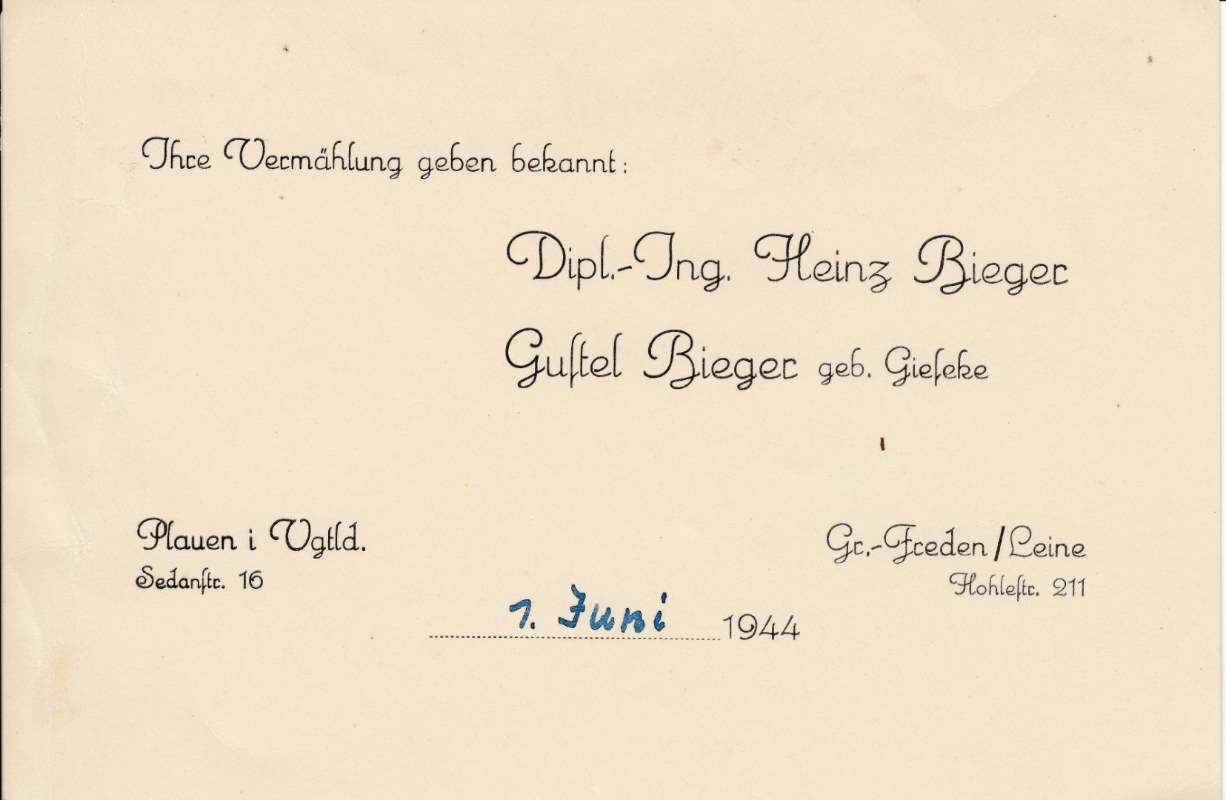 Ihre Vermählung geben bekannt:
Dipl.-Ing. Heinz Bieger
Guſtel Bieger geb. Gieſeke
Plauen i Vgtld.
Sedanſtr. 16
Gr.-Freden/Leine
Hohleſtr. 211
1. Juni 1944